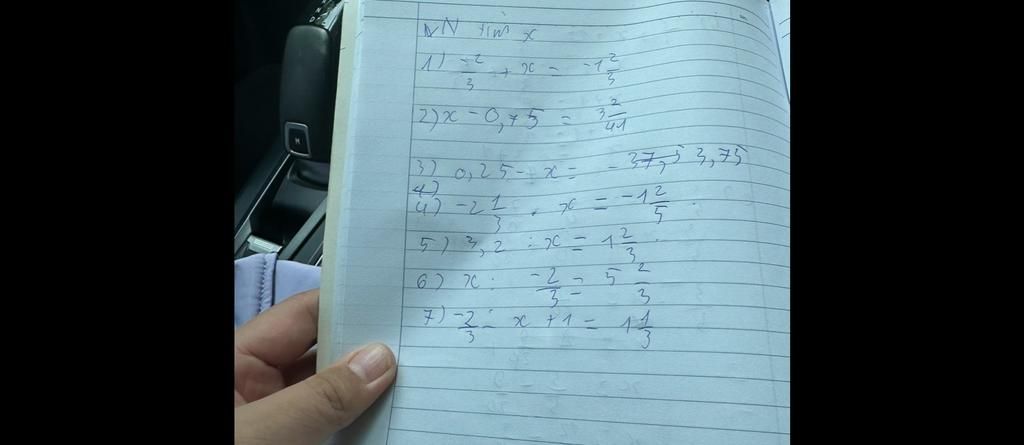 VN tìm x
1) -2/3 + x = -1 2/3
2) x - 0,75 = 3 2/41
3) 0,25 - x = - 37,5 3,75
4)
4) -2 1/3 . x = -1 2/5
5) 3,2 : x = 1 2/3
6) x : -2/3 = 5 2/3
7) -2/3 : x + 1 = 1 1/3